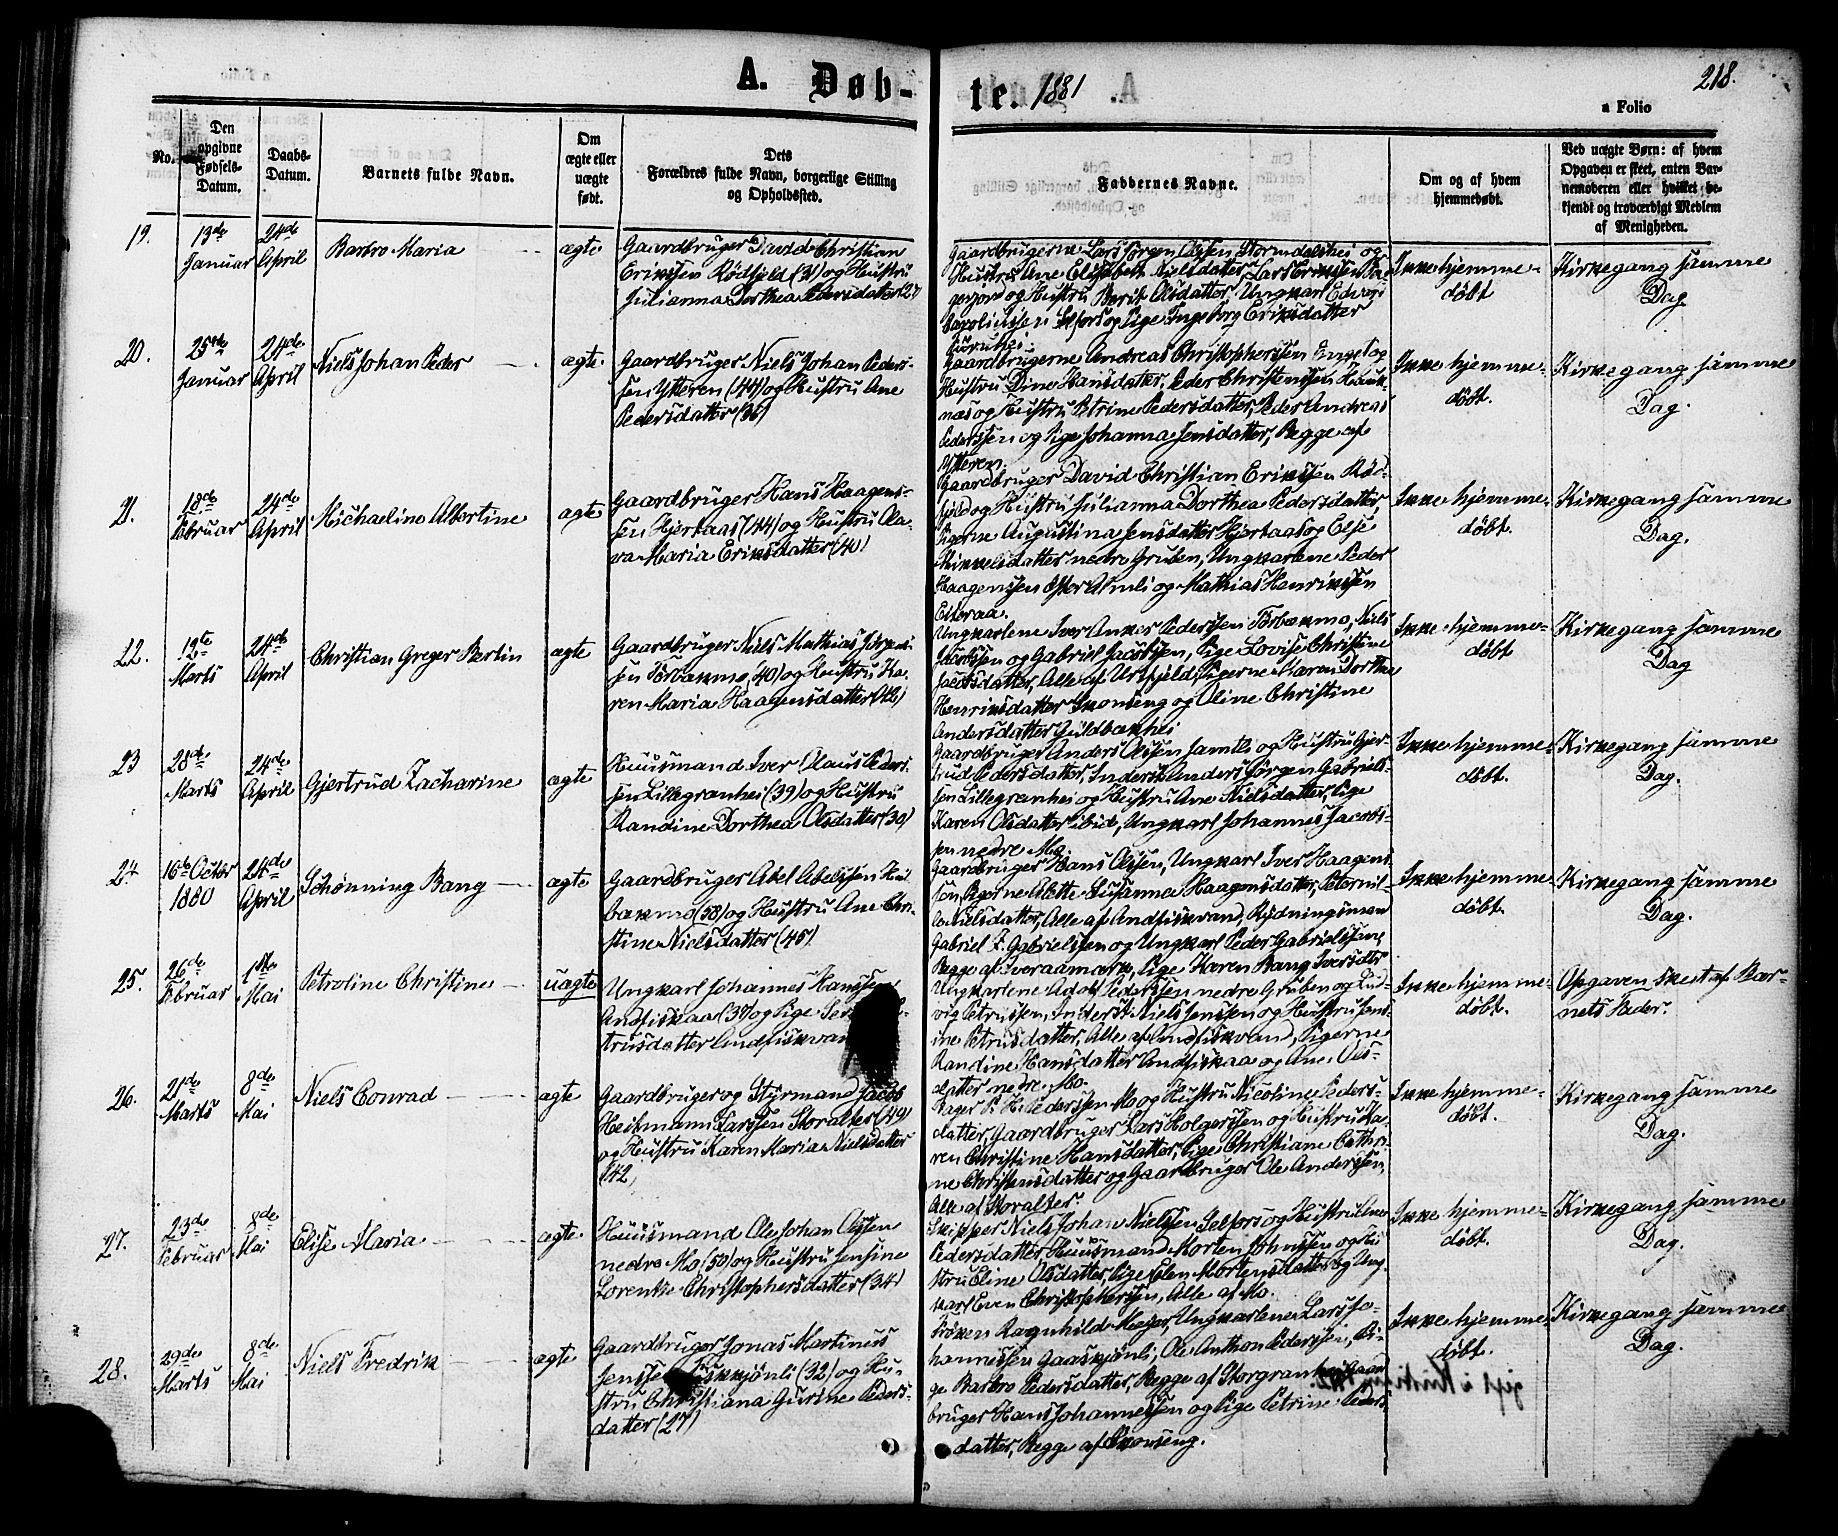 A. Døb-
te. 1881
218.
a Folio
No.
Den
opgivne
Fødsels-
Datum.
Daabs-
Datum.
Barnets fulde Navn.
Om
ægte eller
uægte
født.
Dets
Forældres fulde Navn, borgerlige Stilling
og Opholdssted.
Faddernes Navne.
Om og af hvem
hjemmedøbt.
Ved uægte Børn: af hvem
Opgaven er skeet, enten Bar-
nemoderen eller hvilket be-
kjendt og troværdigt Medlem
af Menigheden.
19.
13de
Januar
24de
April
Barbro Maria
ægte
Gaardbruger David Christian
Eriksen Rödfjeld (31) og Hustru
Julianna Dorthea Pedersdatter (27)
Gaardbrugerne Lars Jörgen Olsen Stormdalshei og
Hustru Ane Elisabeth Nielsdatter, Lars Eriksen
og Hustru Berit Olsdatter, Ungkarl Edvard
Karolinssen Selfors og Pige Ingeborg Eriksdatter
Ikke hjemme-
döbt
Kirkegang samme
Dag
20.
25de
Januar
24de
April
Niels Johan Peder
ægte
Gaardbruger Niels Johan Peders-
sen Ytteren (44) og Hustru Ane
Pedersdatter (36)
Gaardbrugerne Andreas Christophersen Enget og
Hustru Dina Hansdatter, Peder Christensen Hauk-
næs og Hustru Petrine Pedersdatter, Peder Andreas
Pedersen og Pige Johanna Jensdatter, Begge af
Ytteren.
Ikke hjemme-
döbt.
Kirkegang samme
Dag.
21.
18de
Februar
24de
April
Michaeline Albertine
ægte
Gaardbruger Hans Haagens-
sen Hjertaas (44) og Hustru Ola-
va Maria Eriksdatter (40)
Gaardbruger David Christian Eriksen Röd-
fjeld og Hustru Julianna Dorthea Pedersdatter,
Pigerne Augustina Jensdatter Hjertaas og Else
Mikkelsdatter nedre Gruben, Ungkarlene Peder
Haagensen Öster Almli og Mathias Henriksen
Elteraa.
Ikke hjemme-
döbt.
Kirkegang samme
Dag.
22.
13te
Marts
24de
April
Christian Greger Martin
ægte
Gaardbruger Niels Mathias Jörgen-
sen Törbakmo (40) og Hustru Ka-
ren Maria Haagensdatter (42)
Ungkarlene Iver Anker Pedersen Törbakmo, Niels
Jacobsen og Gabriel Jacobsen, Pige Lovise Christine
Jacobsdatter, Alle af Urtfjeld, Pigerne Karen Dorthea
Henriksdatter Skonseng og Oline Christine
Andersdatter Guldbakhei
Ikke hjemme-
döbt
Kirkegang samme
Dag
23
28de
Marts
24de
April
Gjertrud Zacharine
ægte
Huusmand Iver Olaus Peder-
sen Lillegranhei (39) og Hustru
Randine Dorthea Olsdatter (30)
Gaardbruger Anders Olsen Jamtli og Hustru Gjer-
trud Pedersdatter, Inderst Anders Jörgen Gabriels-
sen Lillegranhei og Hustru Ane Nielsdatter, Pige
Karen Olsdatter ibid, Ungkarl Johannes Jacobs-
sen nedre Mo.
Ikke hjemme-
döbt.
Kirkegang samme
Dag.
24.
16de Octbr
1880
24de
April
Schönning Bang
ægte
Gaardbruger Abel Abelsen
bakmo (38) og Hustru Ane Chri-
stine Nielsdatter (45)
Gaardbruger Hans Olsen, Ungkarl Iver Haagens
sen, Pigerne Alette Susanna Haagensdatter, Peternil-
le Nilsdatter, Alle af Andfiskvand, Rydningsman
Gabriel F. Gabrielsen og Ungkarl Peder Gabrielsen,
Begge af Tveraamark, Pige Karen Bang Iversdtr
Ikke hjemme-
döbt.
Kirkegang samme
Dag.
25.
26de
Februar
1ste
Mai
Petroline Christine
uægte
Ungkarl Johannes Hansen
Andfiskaa (37) og Pige
trusdatter Andfiskvand
Ungkarlene Adolf Pedersen nedre Gruben og Lud-
vig Petrussen, Inderst Niels Jensen og Hustru Jens-
ine Petrusdatter, Alle af Andfiskvand, Pigerne
Randine Hansdatter Andfiskaa og Ane Ols-
datter nedre Mo.
Ikke hjemme-
döbt.
Opgaven skeet af Bar-
nets Fader.
26.
21de
Marts
8de
Mai
Niels Conrad
ægte
Gaardbruger og Styrmand Jacob
Heitmann Larsen Storalter (49)
og Hustru Karen Maria Nielsdatter
(42)
Bager P. H. Pedersen Mo og Hustru Nicoline Peders-
datter, Gaardbruger Lars Holgersen og Hustru Ka-
ren Christine Hansdatter, Pige Christiane Cathri-
ne Christensdatter og Gaardbruger Ole Andersen,
Alle af Storalter.
Ikke hjemme-
döbt.
Kirkegang samme
Dag.
27.
23de
Februar
8de
Mai
Elise Maria
ægte
Huusmand Ole Johan Olsen
nedre Mo (50) og Hustru Jensine
Lorentse Christophersdatter (34)
Skipper Niels Johan Nielsen Selfors og Hustru Ane
Pedersdatter, Huusmand Morten Johnsen og Hu-
stru Eline Olsdatter, Pige Elen Mortensdatter og Ung-
karl Even Christophersen, Alle af Mo.
Ikke hjemme-
döbt.
Kirkegang samme
Dag.
28.
29de
Marts
8de
Mai
Niels Fredrik
ægte
Gaardbruger Jonas Martinus
Jensen (32) og Hu-
stru Christiana Gurine Peders-
datter (27)
Fröken Ragnhild Meyer, Ungkarlene Lars Jo-
hannesen Gaaskjönli, Ole Anthon Pedersen, Pi-
ge Barbro Pedersdatter, Begge af Storgranhei, Gaard
bruger Hans Johannesen og Pige Petrine Peders
datter, Begge af Skonseng.
Ikke hjemme-
döbt.
Kirkegang samme
Dag.